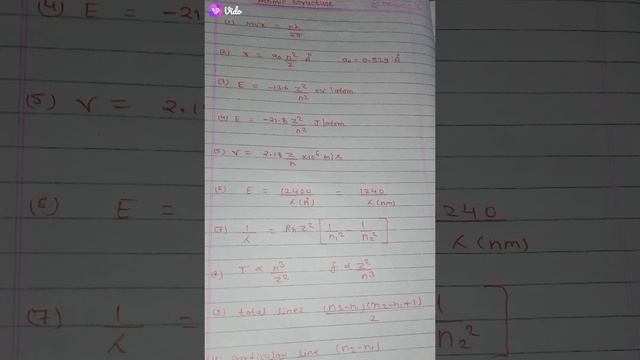 Vido
Atomic Structure
(1) mvr = nh/2π
(2) r = a₀ n²/z A° a₀ = 0.529 A°
(3) E = -13.6 z²/n² ev/atom
(4) E = -21.8 z²/n² J/atom
(5) V = 2.18 z/n × 10⁶ m/s
(6) E = 12400/λ(A°) = 1240/λ(nm)
(7) 1/λ = RH z² [1/n₁² - 1/n₂²]
(8) T ∝ n³/z² f ∝ z²/n³
(9) total lines (n₂-n₁)(n₂-n₁+1)/2
particular line (n₂-n₁)
(4) E = -21
(5) V = 2.1
(6) E =
(7) 1/λ =
240
λ(nm)
n₂²